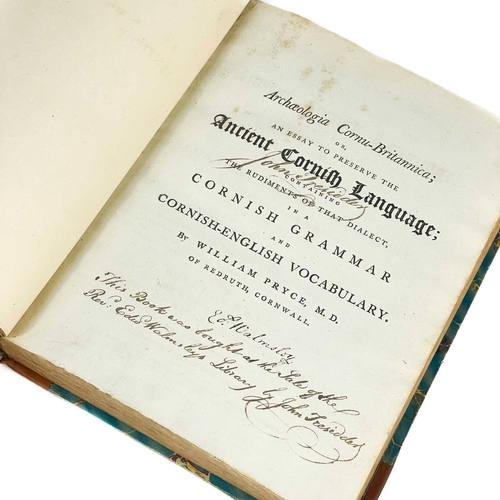 Archæologia Cornu-Britannica;
OR,
AN ESSAY TO PRESERVE THE
Ancient Cornish Language;
John Tresidder
CONTAINING
THE RUDIMENTS OF THAT DIALECT,
IN A
CORNISH GRAMMAR
AND
CORNISH-ENGLISH VOCABULARY.
By WILLIAM PRYCE, M.D.
OF REDRUTH, CORNWALL.
Ed. Walmsley
This Book was bought at the Sale of the
Rev: Edw Walmsleys Library by John Tresidder